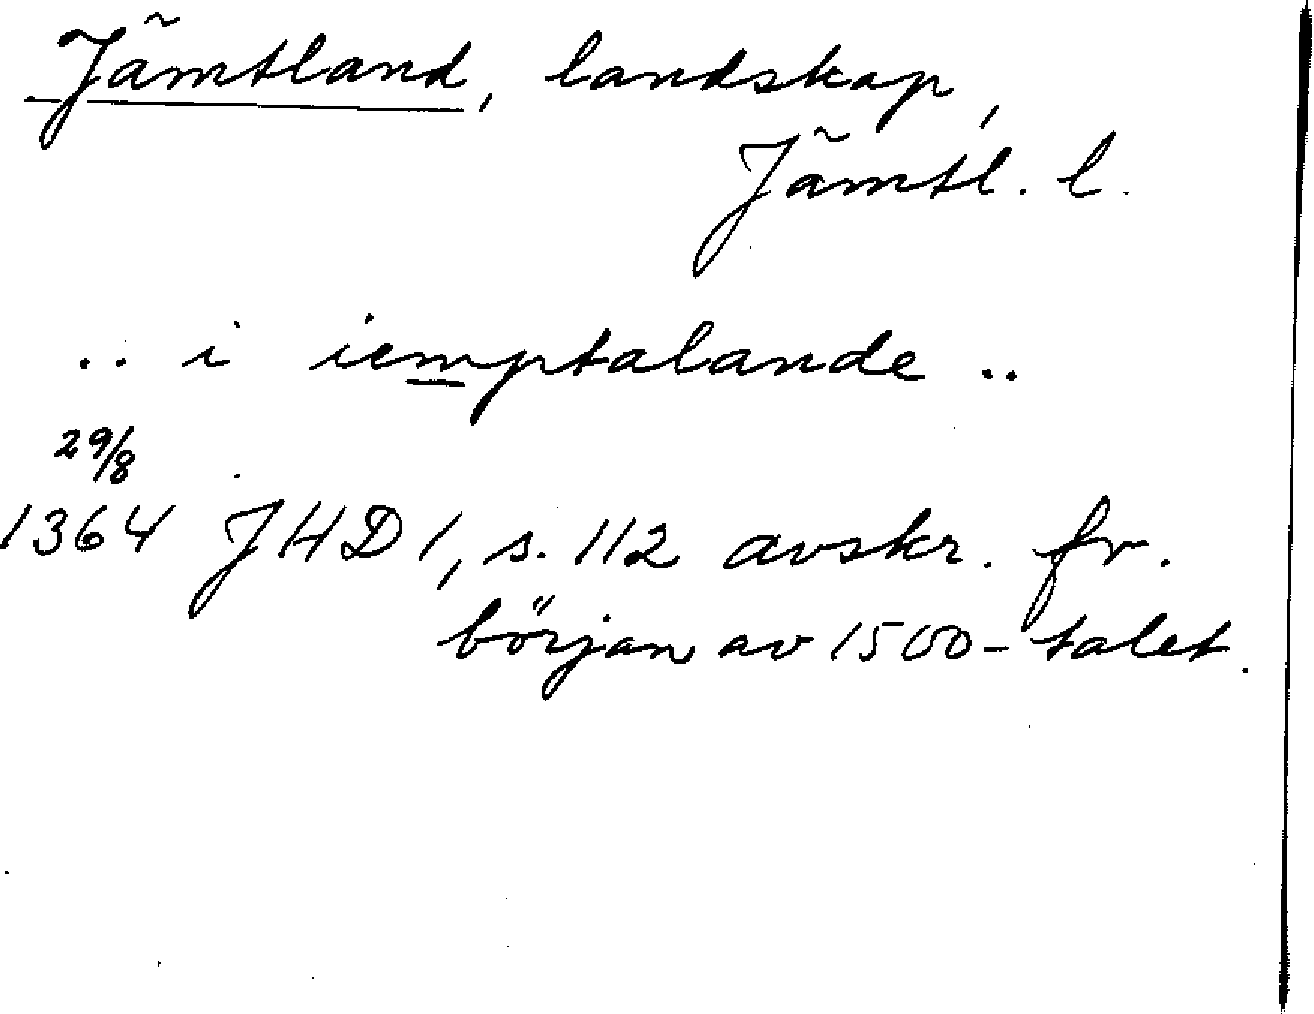 Jämtland, landskap,
Jämtl. l.
.. i iemptalande ..
29/8
1364 JHD 1, s. 112 avskr. fr.
början av 1500-talet.